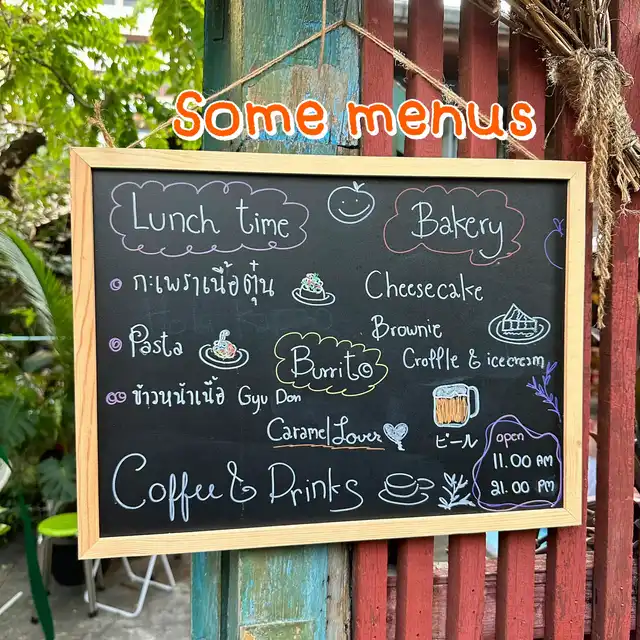 Some menus
Lunch time
Bakery
กะเพราเนื้อตุ๋น
Cheesecake
Pasta
Brownie
Burrito
Croffle & icecream
ข้าวหน้าเนื้อ Gyu Don
Caramel Lover
ビール
open
11.00 AM
21.00 PM
Coffee & Drinks